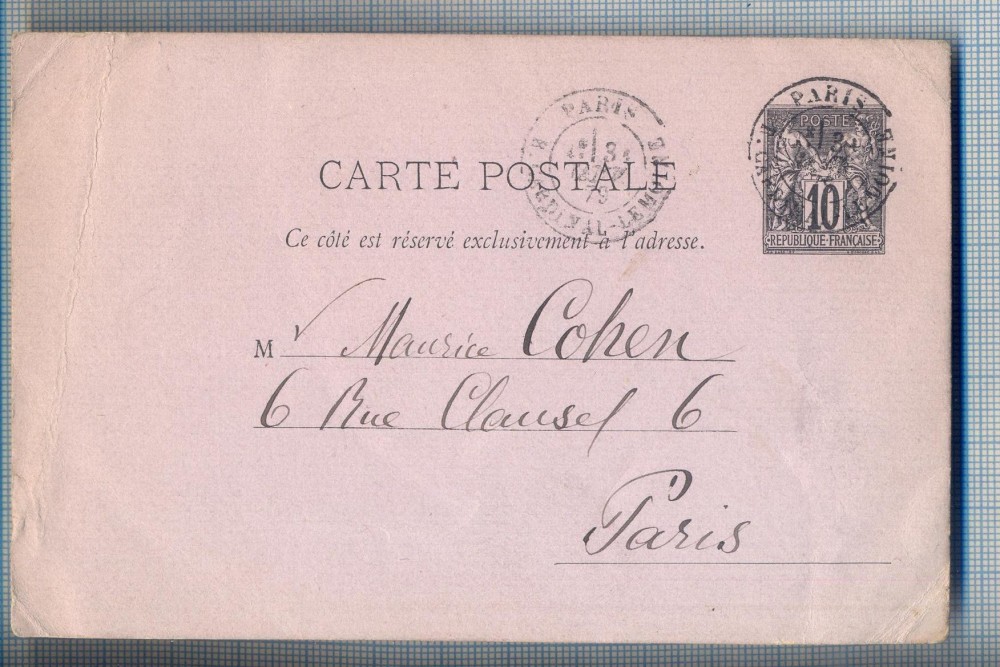 PARIS
R. CARDINAL-LEMOINE
79
PARIS
POSTES
10
REPUBLIQUE FRANÇAISE
CARTE POSTALE
Ce côté est réservé exclusivement à l'adresse.
M r Maurice Cohen
6 Rue Clausel 6
Paris